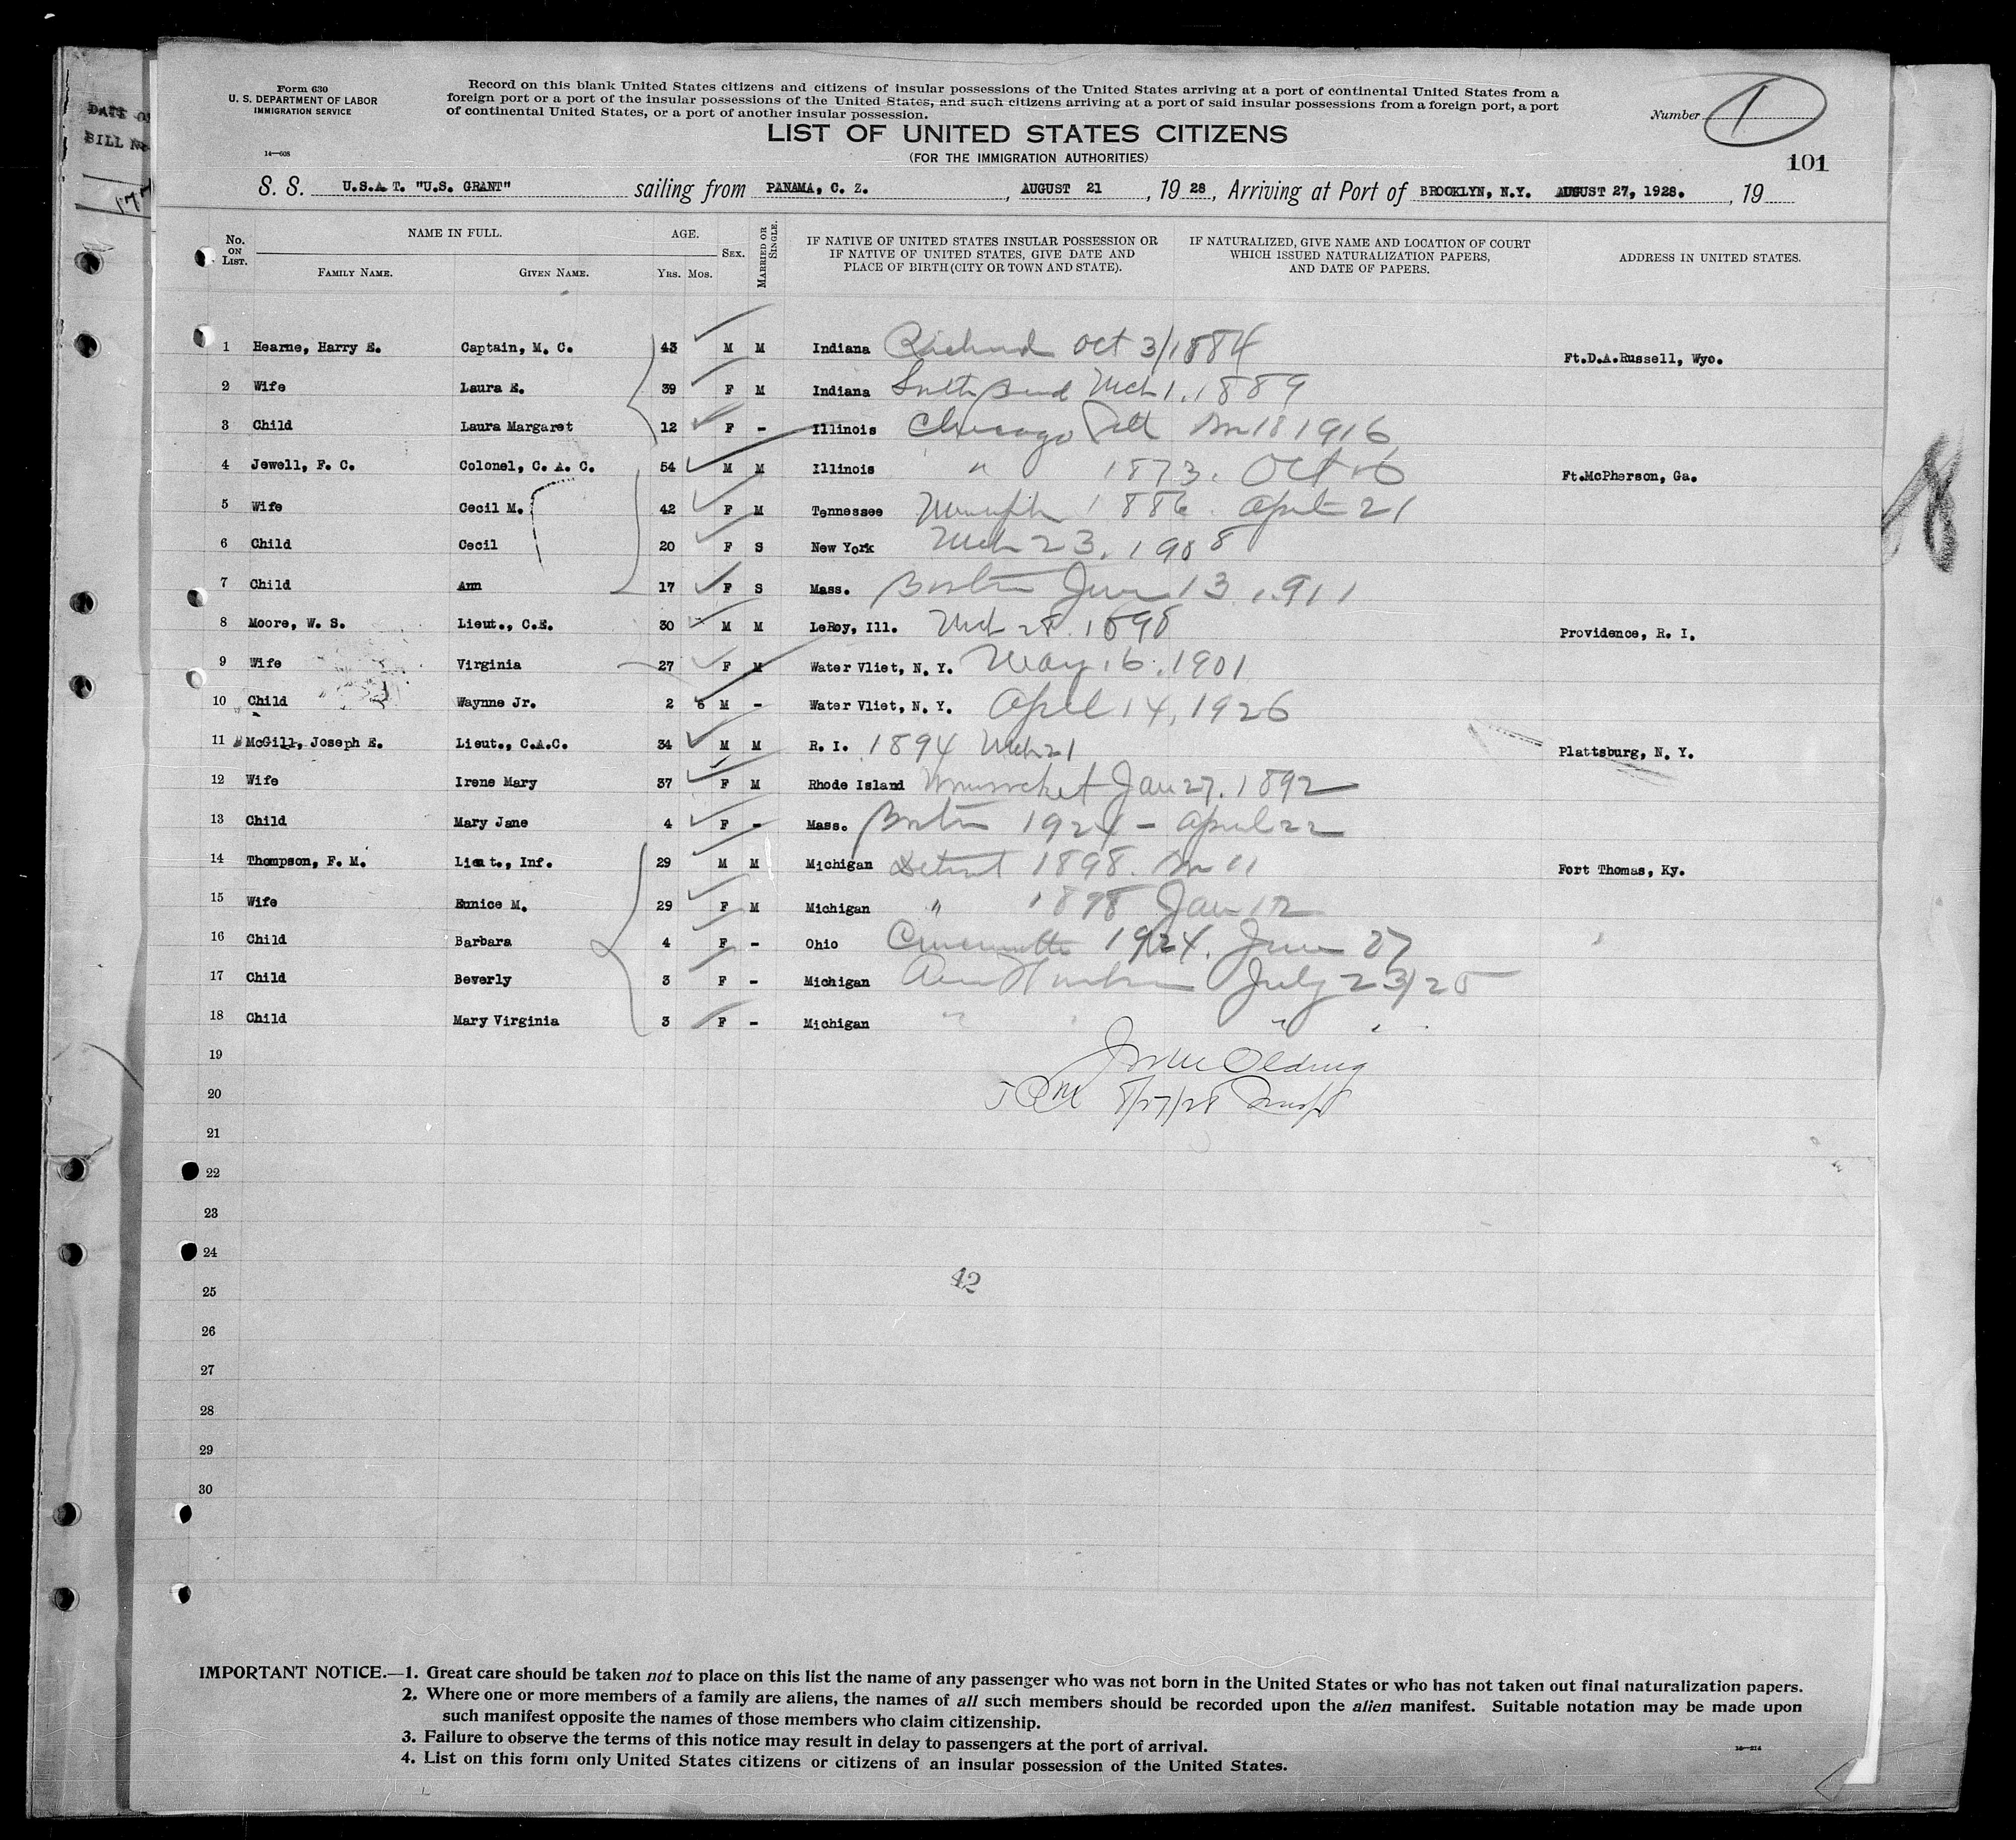 DATE O
BILL No
177
Form 630
U. S. DEPARTMENT OF LABOR
IMMIGRATION SERVICE
14—608
Record on this blank United States citizens and citizens of insular possessions of the United States arriving at a port of continental United States from a
foreign port or a port of the insular possessions of the United States, and such citizens arriving at a port of said insular possessions from a foreign port, a port
of continental United States, or a port of another insular possession.
Number 1
LIST OF UNITED STATES CITIZENS
(FOR THE IMMIGRATION AUTHORITIES)
101
S. S. U.S.A.T. "U.S. GRANT" sailing from PANAMA, C. Z., AUGUST 21, 1928, Arriving at Port of BROOKLYN, N.Y. AUGUST 27, 1928., 19
No. ON LIST. NAME IN FULL. FAMILY NAME. GIVEN NAME. AGE. YRS. MOS. SEX. MARRIED OR SINGLE. IF NATIVE OF UNITED STATES INSULAR POSSESSION OR IF NATIVE OF UNITED STATES, GIVE DATE AND PLACE OF BIRTH (CITY OR TOWN AND STATE). IF NATURALIZED, GIVE NAME AND LOCATION OF COURT WHICH ISSUED NATURALIZATION PAPERS, AND DATE OF PAPERS. ADDRESS IN UNITED STATES.
1 Hearne, Harry E. Captain, M. C. 43 M M Indiana Oct 3/1884 Ft.D.A.Russell, Wyo.
2 Wife Laura E. 39 F M Indiana South Bend Mch 1, 1889
3 Child Laura Margaret 12 F - Illinois Chicago 18 1916
4 Jewell, F. C. Colonel, C. A. C. 54 M M Illinois " 1873. Oct 16 Ft.McPherson, Ga.
5 Wife Cecil M. 42 F M Tennessee Memphis 1886. April 21
6 Child Cecil 20 F S New York Mch 23, 1908
7 Child Ann 17 F S Mass. Boston June 13, 1911
8 Moore, W. S. Lieut., C.E. 30 M M LeRoy, Ill. Mch 28. 1898 Providence, R. I.
9 Wife Virginia 27 F M Water Vliet, N. Y. May 16, 1901
10 Child Waynne Jr. 2 6 M - Water Vliet, N. Y. April 14, 1926
11 McGill, Joseph E. Lieut., C.A.C. 34 M M R. I. 1894 Mch 21 Plattsburg, N. Y.
12 Wife Irene Mary 37 F M Rhode Island Woonsocket Jan 27, 1892
13 Child Mary Jane 4 F - Mass. Boston 1924 - April 22
14 Thompson, F. M. Lieut., Inf. 29 M M Michigan Detroit 1898. 11 Fort Thomas, Ky.
15 Wife Eunice M. 29 F M Michigan " 1898 Jan 12
16 Child Barbara 4 F - Ohio Cincinnati 1924. June 27
17 Child Beverly 3 F - Michigan Ann Arbor July 23/25
18 Child Mary Virginia 3 F - Michigan " " "
19
20 8/27/28
21
22
23
24
25
42
26
27
28
29
30
IMPORTANT NOTICE.—1. Great care should be taken not to place on this list the name of any passenger who was not born in the United States or who has not taken out final naturalization papers.
2. Where one or more members of a family are aliens, the names of all such members should be recorded upon the alien manifest. Suitable notation may be made upon
such manifest opposite the names of those members who claim citizenship.
3. Failure to observe the terms of this notice may result in delay to passengers at the port of arrival.
4. List on this form only United States citizens or citizens of an insular possession of the United States.